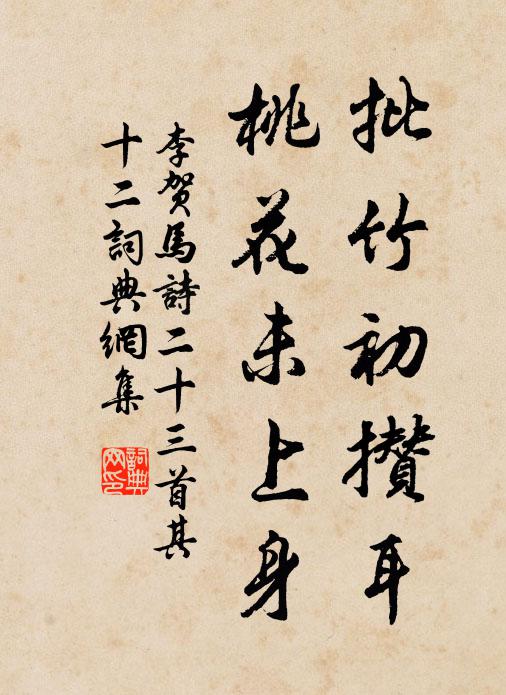 批竹初攢耳
桃花未上身
李賀馬詩二十三首其
十二詞典網集
詞典网印